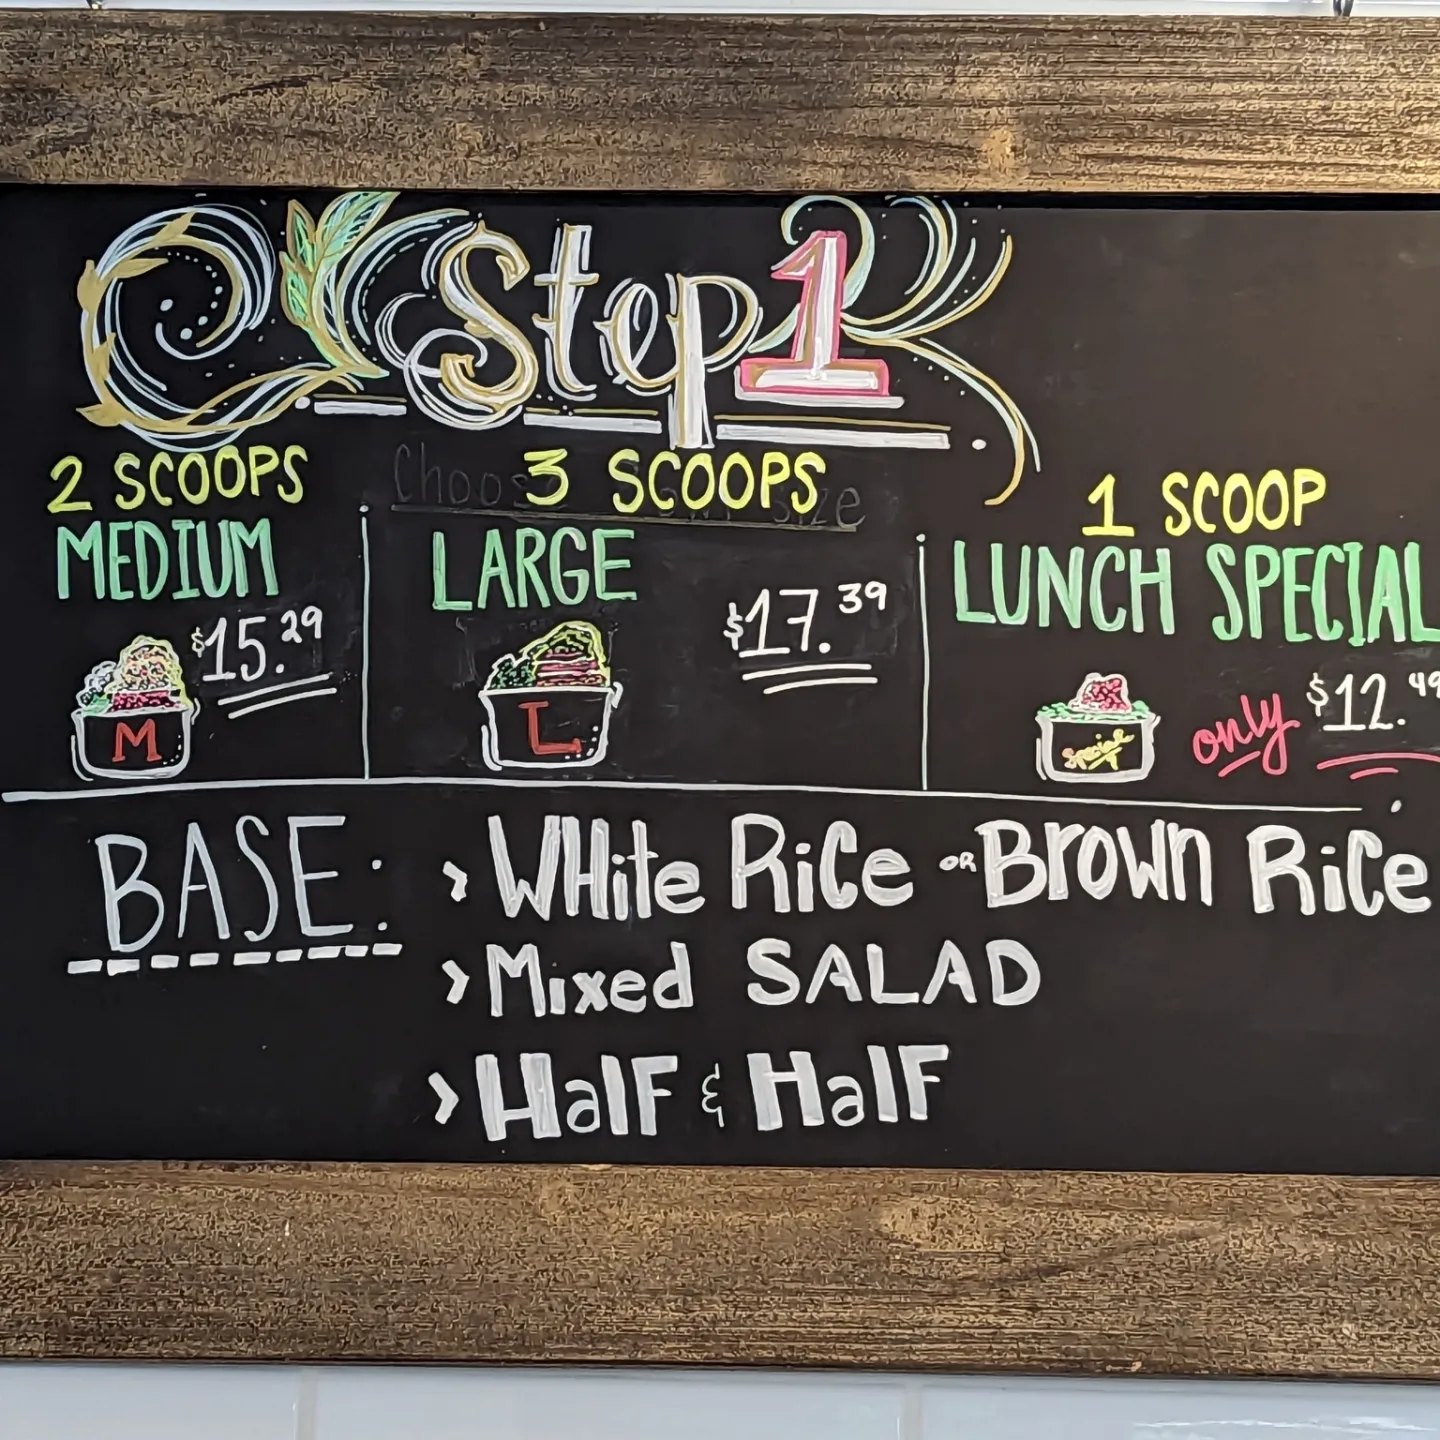 Step 1
Choose your size
2 SCOOPS
MEDIUM
$15.29
M
3 SCOOPS
LARGE
$17.39
L
1 SCOOP
LUNCH SPECIAL
Special
only $12.49
BASE:
> WHite RiCe OR BrOWn RiCe
> Mixed SALAD
> HalF & HalF